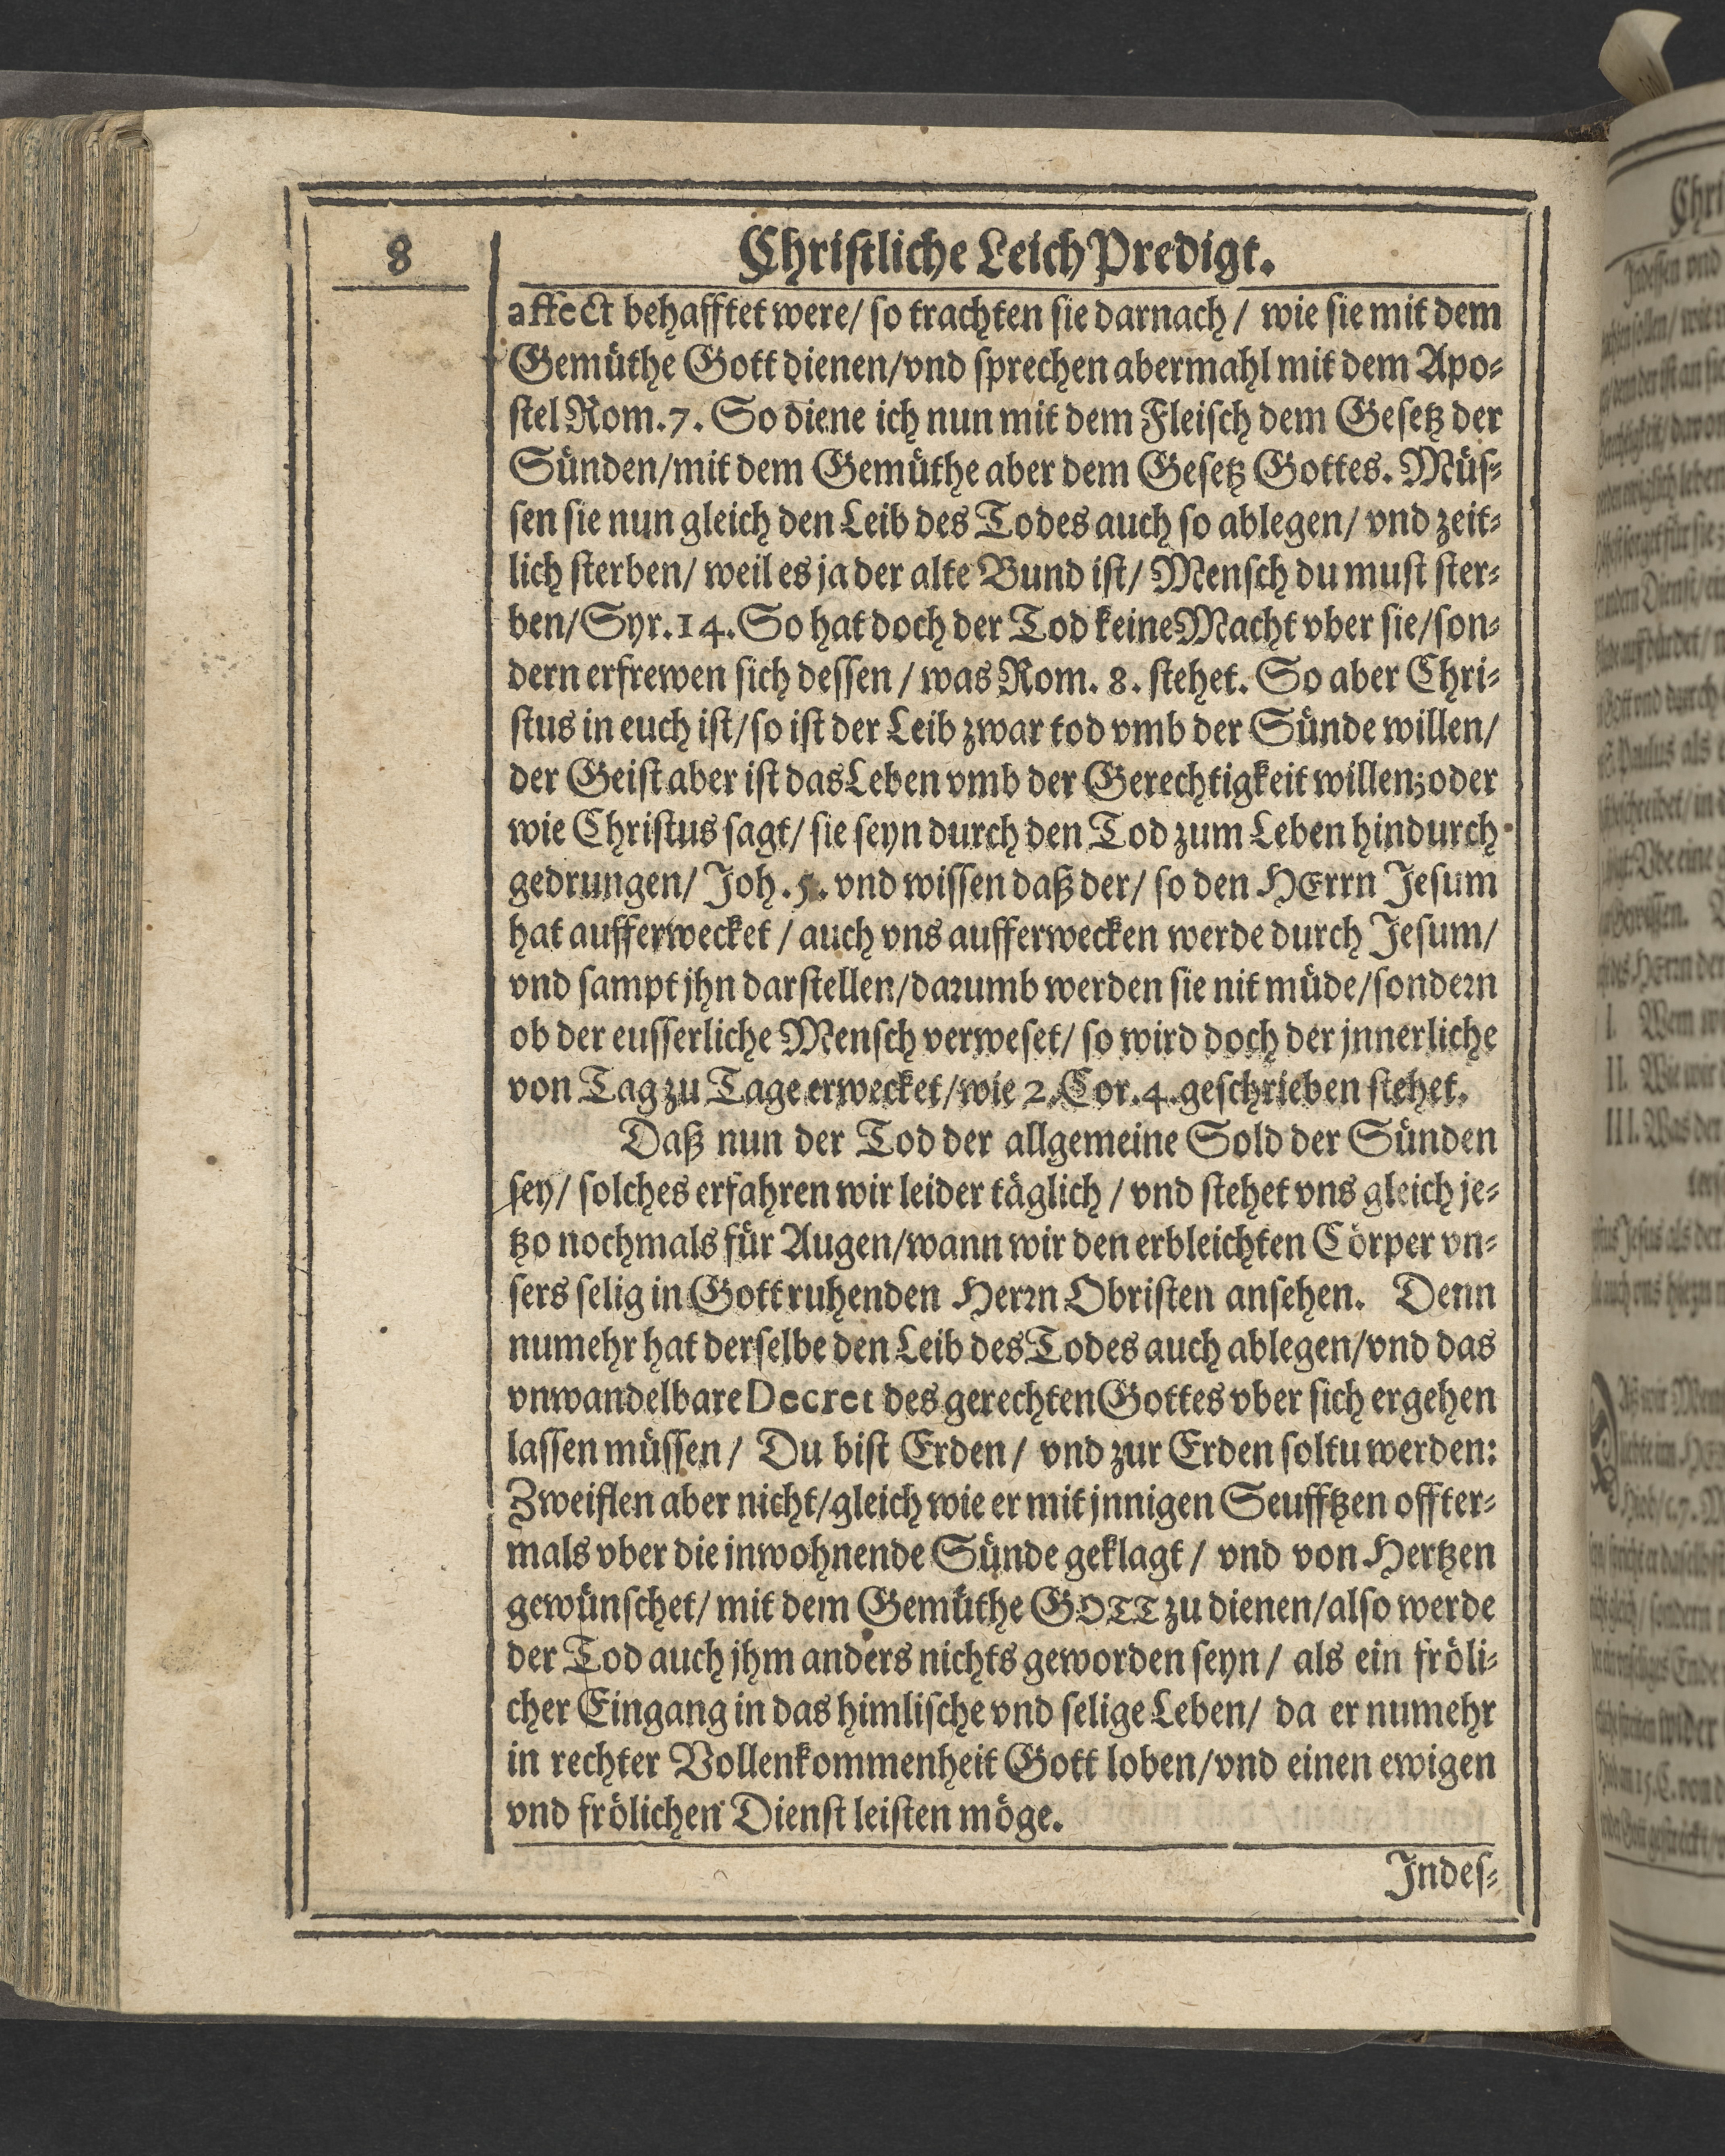 8
Christliche LeichPredigt.
affect behafftet were/ so trachten sie darnach/ wie sie mit dem
Gemüthe Gott dienen/vnd sprechen abermahl mit dem Apo-
stel Rom.7. So diene ich nun mit dem Fleisch dem Gesetz der
Sünden/mit dem Gemüthe aber dem Gesetz Gottes. Müs-
sen sie nun gleich den Leib des Todes auch so ablegen/ vnd zeit-
lich sterben/ weil es ja der alte Bund ist/ Mensch du must ster-
ben/Syr.14. So hat doch der Tod keine Macht vber sie/son-
dern erfrewen sich dessen/ was Rom. 8. stehet. So aber Chri-
stus in euch ist/so ist der Leib zwar tod vmb der Sünde willen/
der Geist aber ist das Leben vmb der Gerechtigkeit willen;oder
wie Christus sagt/ sie seyn durch den Tod zum Leben hindurch
gedrungen/ Joh.5. vnd wissen daß der/ so den HErrn Jesum
hat aufferwecket/ auch vns aufferwecken werde durch Jesum/
vnd sampt jhn darstellen/darumb werden sie nit müde/sondern
ob der eusserliche Mensch verweset/ so wird doch der jnnerliche
von Tag zu Tage erwecket/wie 2.Cor.4.geschrieben stehet.
Daß nun der Tod der allgemeine Sold der Sünden
sey/ solches erfahren wir leider täglich/ vnd stehet vns gleich je-
tzo nochmals für Augen/wann wir den erbleichten Cörper vn-
sers selig in Gott ruhenden Herrn Obristen ansehen. Denn
numehr hat derselbe den Leib des Todes auch ablegen/vnd das
vnwandelbare Decret des gerechten Gottes vber sich ergehen
lassen müssen/ Du bist Erden/ vnd zur Erden soltu werden:
Zweiflen aber nicht/gleich wie er mit jnnigen Seufftzen offter-
mals vber die inwohnende Sünde geklagt/ vnd von Hertzen
gewünschet/ mit dem Gemüthe GOTT zu dienen/also werde
der Tod auch jhm anders nichts geworden seyn/ als ein fröli-
cher Eingang in das himlische vnd selige Leben/ da er numehr
in rechter Vollenkommenheit Gott loben/vnd einen ewigen
vnd frölichen Dienst leisten möge.
Indes-